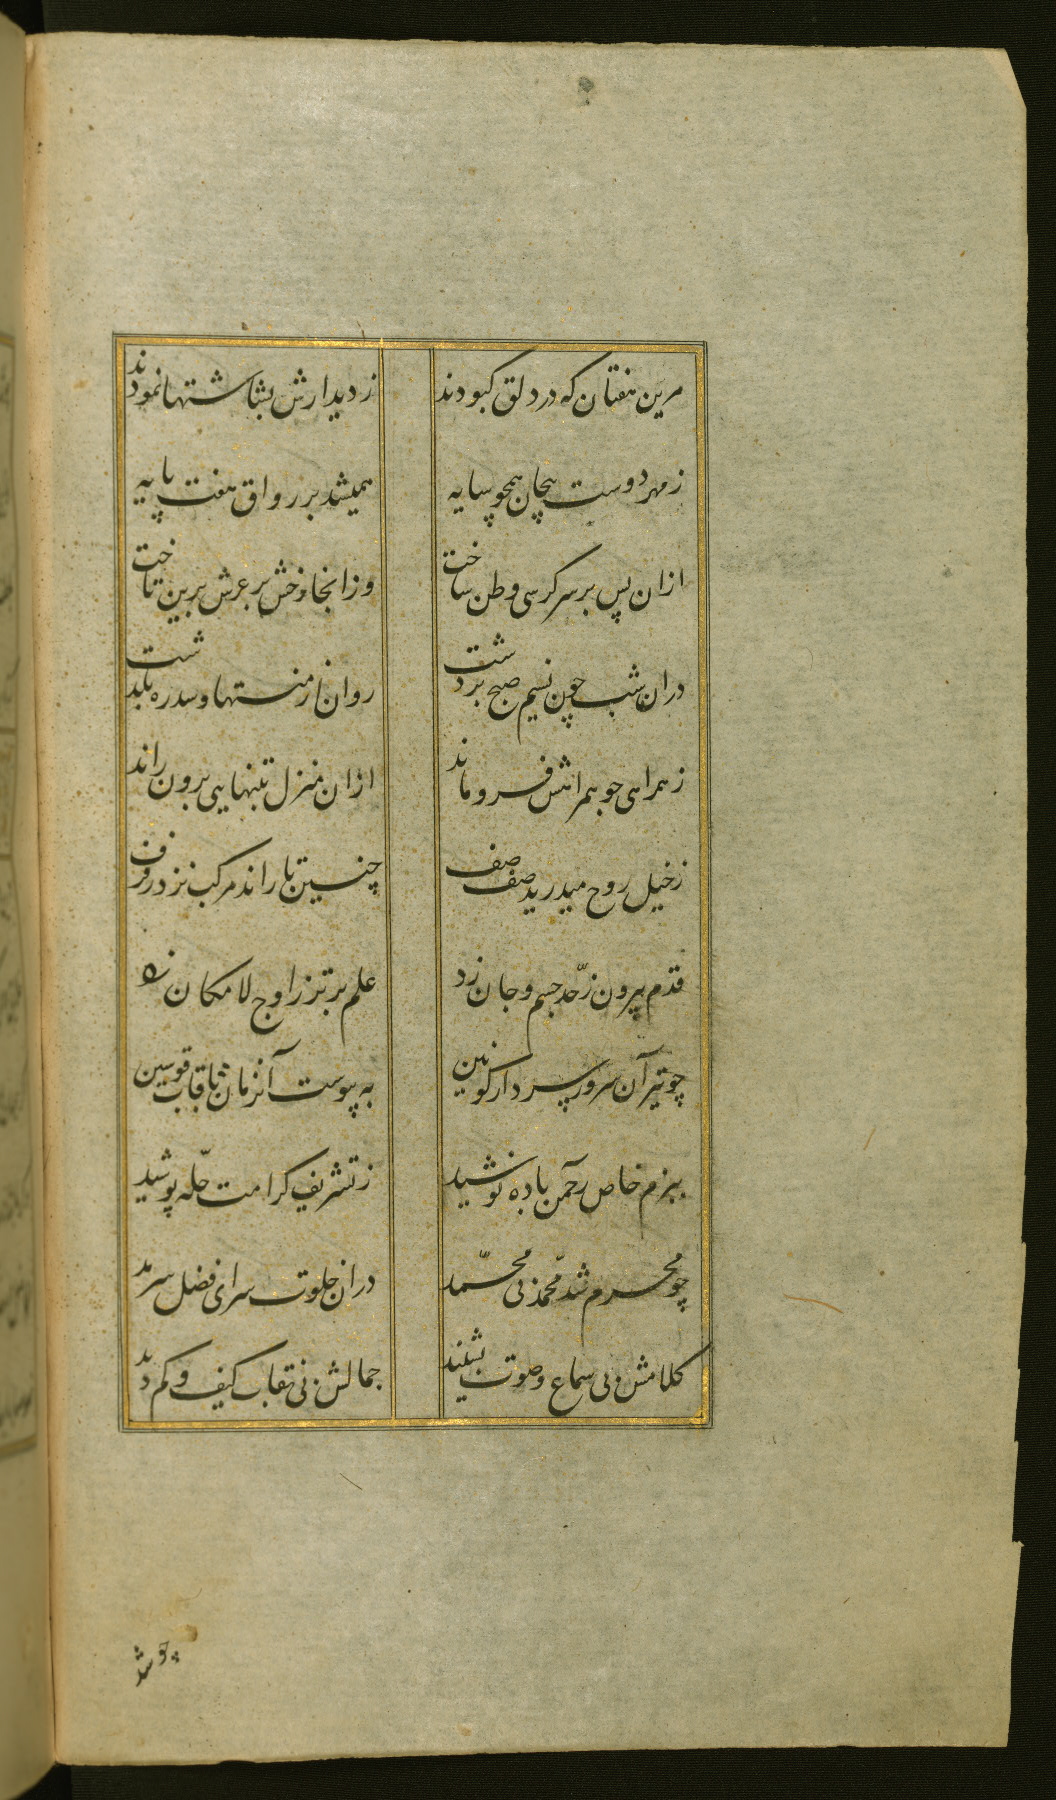 مرین هفتان که در دلق کبودند ز دیدارش بشاشتها نمودند
ز مهر دوست پیچان همچو سایه همیشد بر رواق هفت پایه
ازان پس بر سر کرسی وطن ساخت وزانجا رخش بر عرش برین تاخت
دران شب چون نسیم صبح بر دشت روان از منتها و سدره بگذشت
ز همراهی چو همراهش فرو ماند ازان منزل بتنهایی برون راند
ز خیل روح میدرید صف صف چنین تا راند مرکب نزد رفرف
قدم بیرون ز حدّ جسم و جان زد علم برتر ز اوج لامکان زد
چو تیر آن سرور سردار کونین به پیوست آنزمان با قاب قوسین
ببزم خاص رحمن باده نوشید ز تشریف کرامت حلّه پوشید
چو محرم شد محمّد بی محمّد دران خلوت سرای فضل سرمد
کلامش بی سماع و صوت بشنید جمالش بی نقاب کیف و کم دید
چو شد